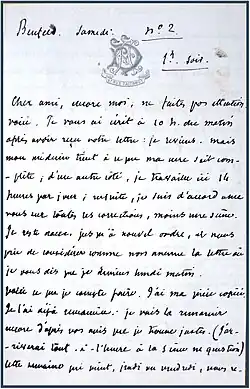 Samedi. No 2.
1h. soir.
Cher ami, encore moi, ne faites pas attention
voici. Je vous ai écrit à 10 h. du matin
après avoir reçu votre lettre : je reviens. mais
mon médecin tient à ce que ma cure soit com-
plète ; d'une autre côté, je travaille ici 14
heures par jour ; ensuite, je suis d'accord avec
vous sur toutes les corrections, moins une scène.
Je reste donc, jusqu'à nouvel ordre, et vous
prie de considérer comme non avenue la lettre où
je vous dis que je lundi matin.
Voilà ce que je compte faire. J'ai ma pièce copiée
Je l'ai déjà remaniée. je vais la remanier
encore d'après vos avis que je trouve justes. (J'ar-
riverai tout à l'heure à la scène en question)
cette semaine qui vient, jeudi ou vendredi, vous re-